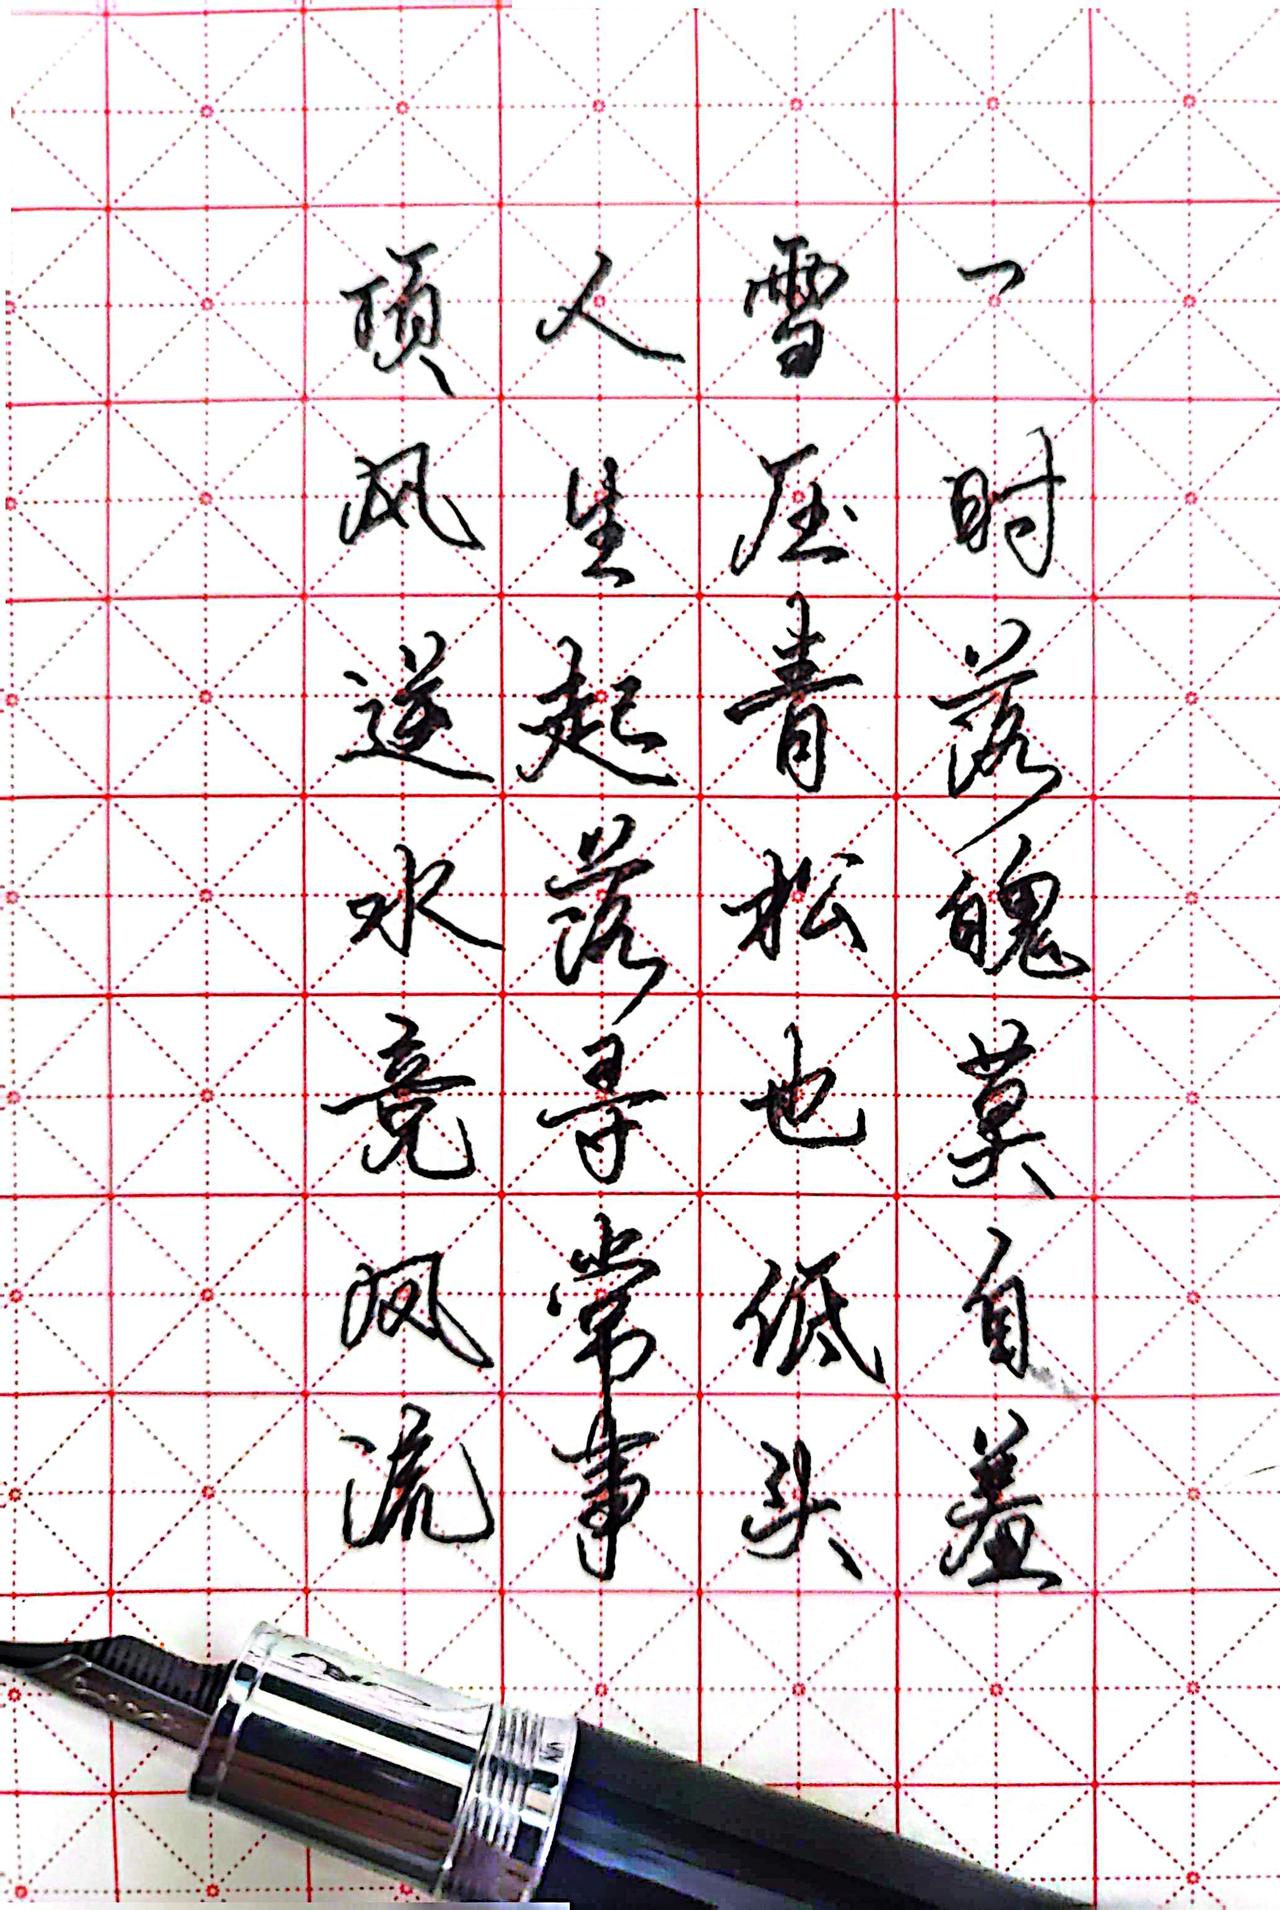 一时落魄莫自羞
雪压青松也低头
人生起落寻常事
顶风逆水竞风流